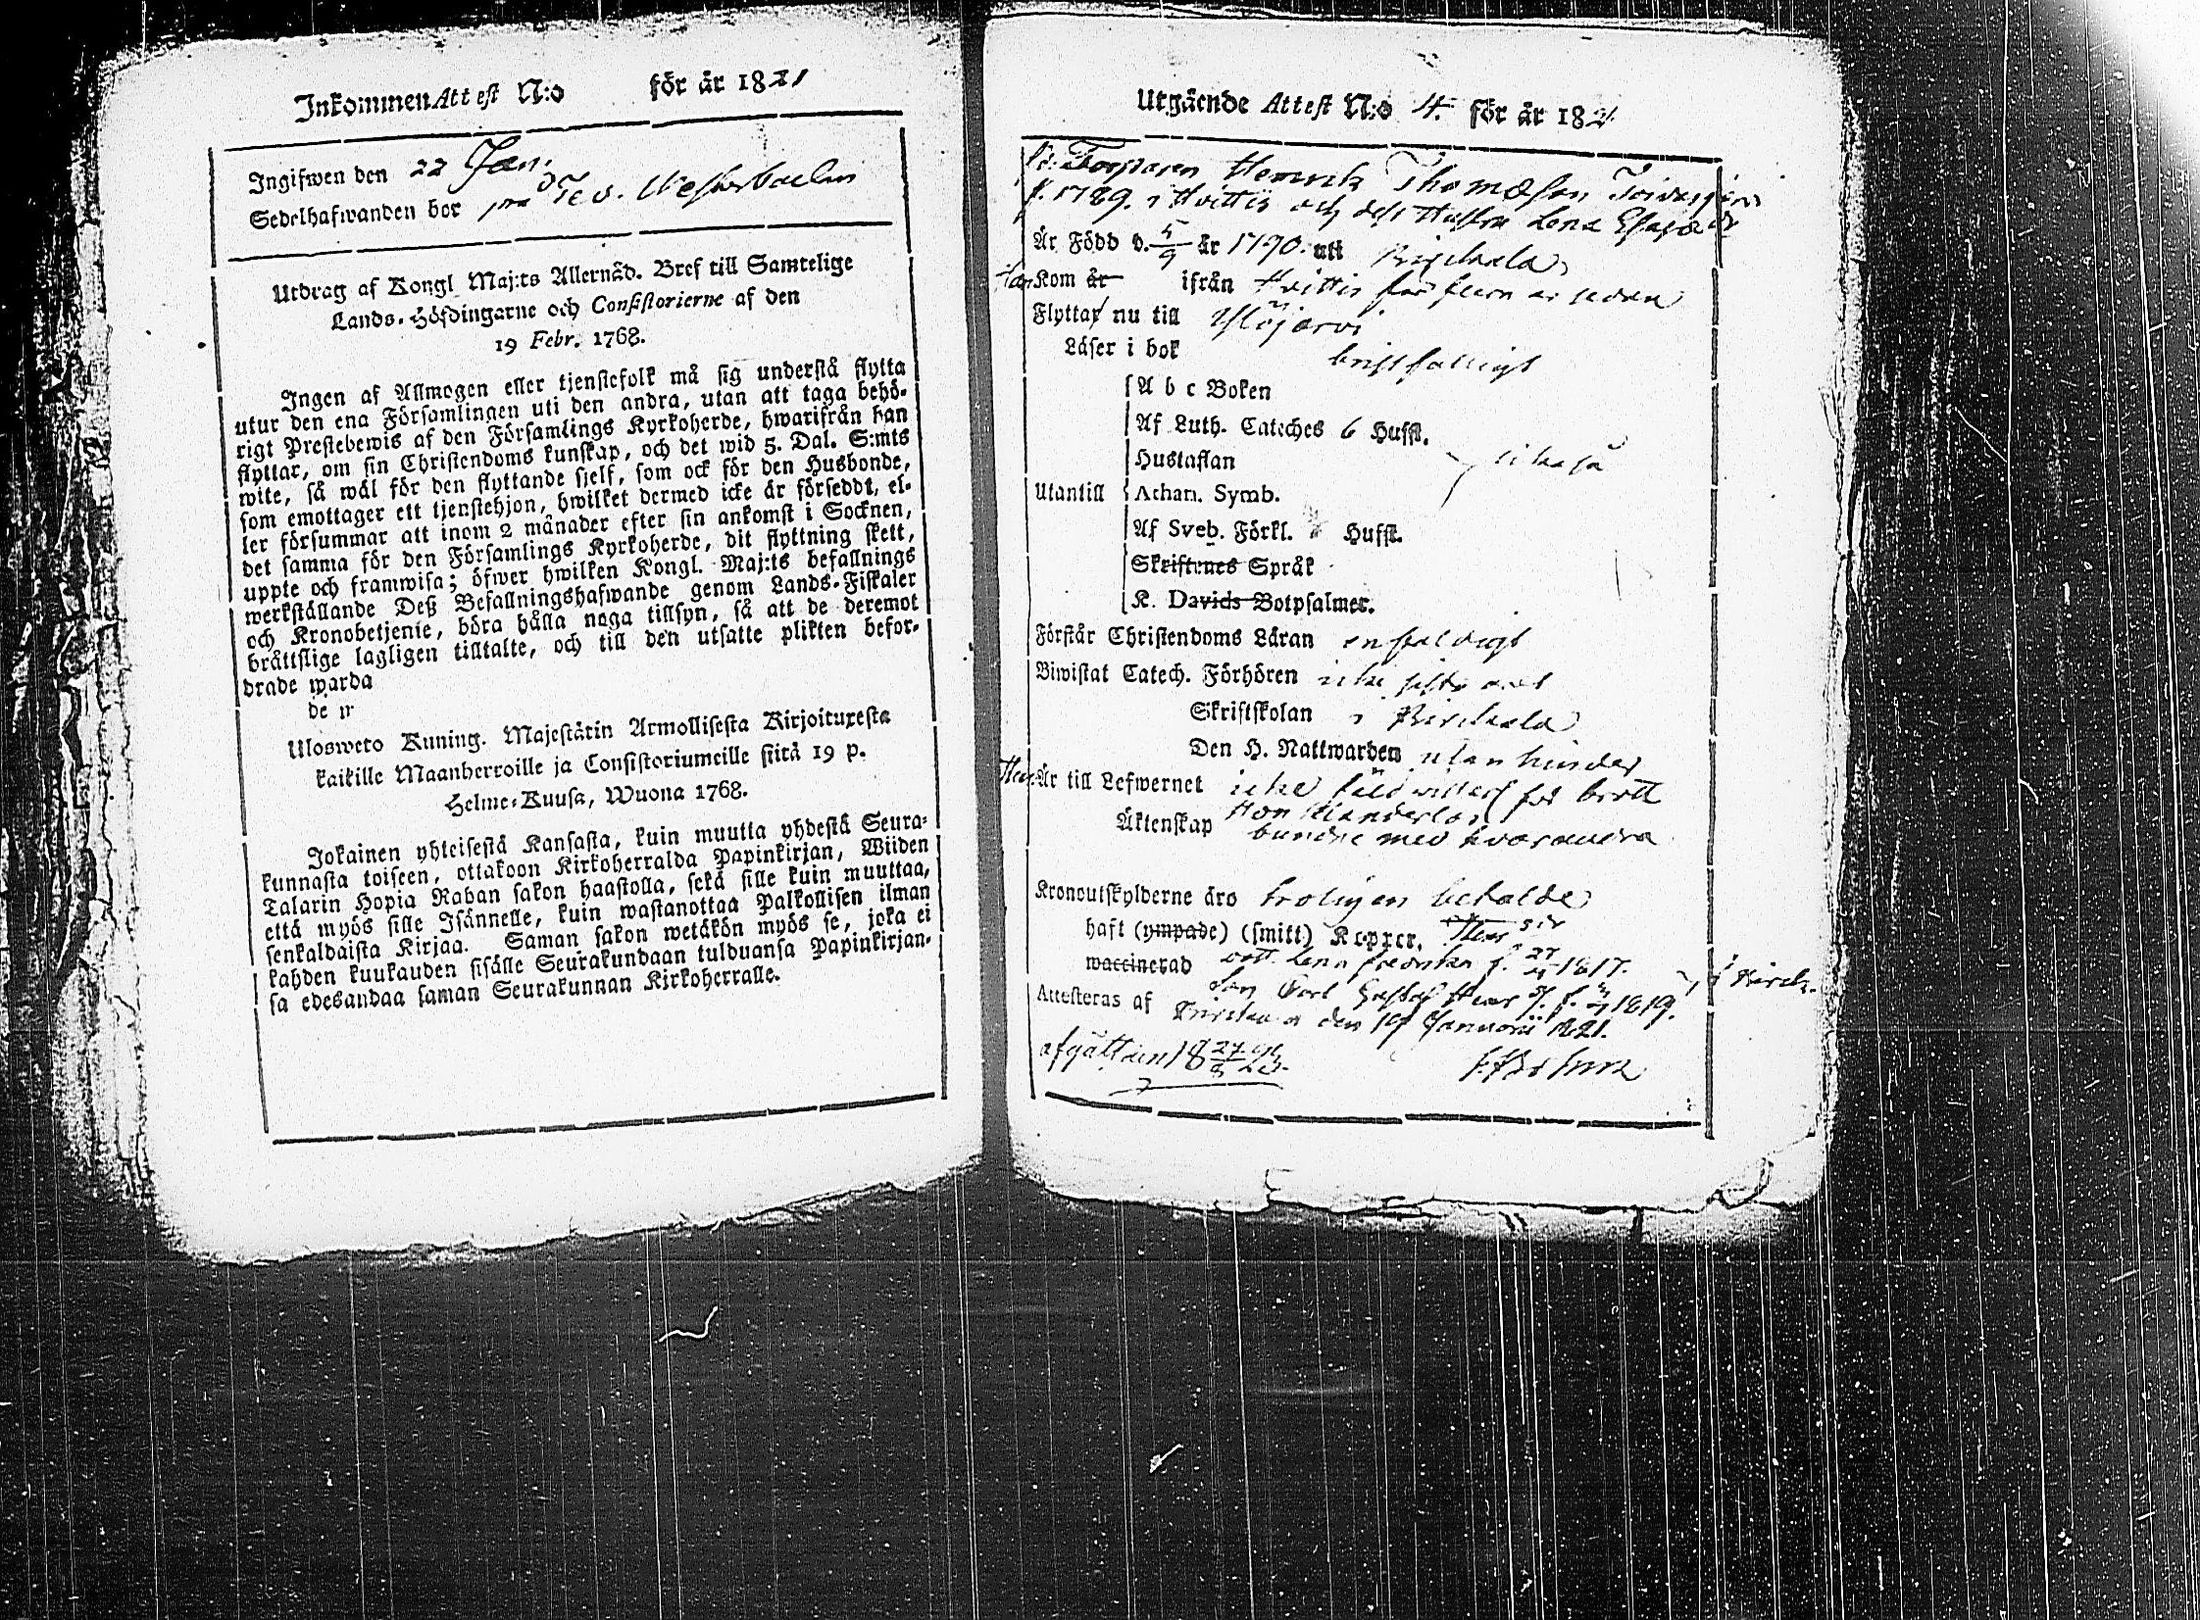 Inkommen Attest N:o för år 1821
Ingifwen den 22 Jan.
Sedelhafwanden bor på
Utdrag af Kongl Maj:ts Allernåd. Bref till Samtelige
Lands-Höfdingarne och Consistorierne af den
19 Febr. 1768.
Ingen af Allmogen eller tjenstefolk må sig understå flytta
utur den ena Församlingen uti den andra, utan att taga behö-
rigt Prestebewis af den Församlings Kyrkoherde, hwarifrån han
flyttar, om sin Christendoms kunskap, och det wid 5. Dal. S:mts
wite, så wäl för den flyttande sielf, som ock för den Husbonde,
som emottager ett tjenstehjon, hwilket dermed icke är försedt, el-
ler försummar att inom 2 månader efter sin ankomst i Socknen,
det samma för den Församlings Kyrkoherde, dit flyttning skett,
uppte och framwisa; öfwer hwilken Kongl. Maj:ts befallnings
werkställande Deß Befallningshafwande genom Lands-Fiskaler
och Kronobetjente, böra hålla noga tillsyn, så att de deremot
bråttslige lagligen tilltalte, och till den utsatte plikten befor-
drade warda
Ulosweto Kuning. Majestätin Armollisesta Kirjoituxesta
kaikille Maanherroille ja Consistoriumeille siitä 19 p.
Helme-Kuusa, Wuona 1768.
Jokainen yhteisestä Kansasta, kuin muutta yhdestä Seura-
kunnasta toiseen, ottakoon Kirkoherralda Papinkirjan, Wiiden
Talarin Hopia Rahan sakon haastolla, sekä sille kuin muuttaa,
että myös sille Isännelle, kuin wastanottaa Palkollisen ilman
senkaldaista Kirjaa. Saman sakon wetäkön myös se, joka ei
kahden kuukauden sisälle Seurakundaan tulduansa Papinkirjan-
sa edesandaa saman Seurakunnan Kirkoherralle.
Utgående Attest N:o 4. för år 1821
Torparen Henrik Thomasson
f. 1789. i Hvittis och dess Hustru Lena
Är Född d. 5/9 år 1790. uti Birckala
Han Kom år ifrån Hvittis för flera år sedan
Flyttar nu till Ylöjärvi
Läser i bok bristfälligt
A b c Boken
Af Luth. Cateches 6 Hufst.
Hustaflan likaså
Utantill Athan. Symb.
Af Sveb. Förkl. Hufst.
Skriftenes Språk
K. Davids Botpsalmer.
Förstår Christendoms Läran enfaldigt
Biwistat Catech. Förhören icke sista året
Skriftskolan i Birckala
Den H. Nattwarden utan hinder
Är till Lefwernet icke för brott
Hon klanderlös
Äktenskap bundne med hvarandra
Kronoutskylderne äro betalde
haft (ympade) (smitt) Koppor.
waccinerad f. 1817.
Son Carl Gustaf f. 1819. i Birck.
Attesteras af Birckala den 19 Januarii 1821.